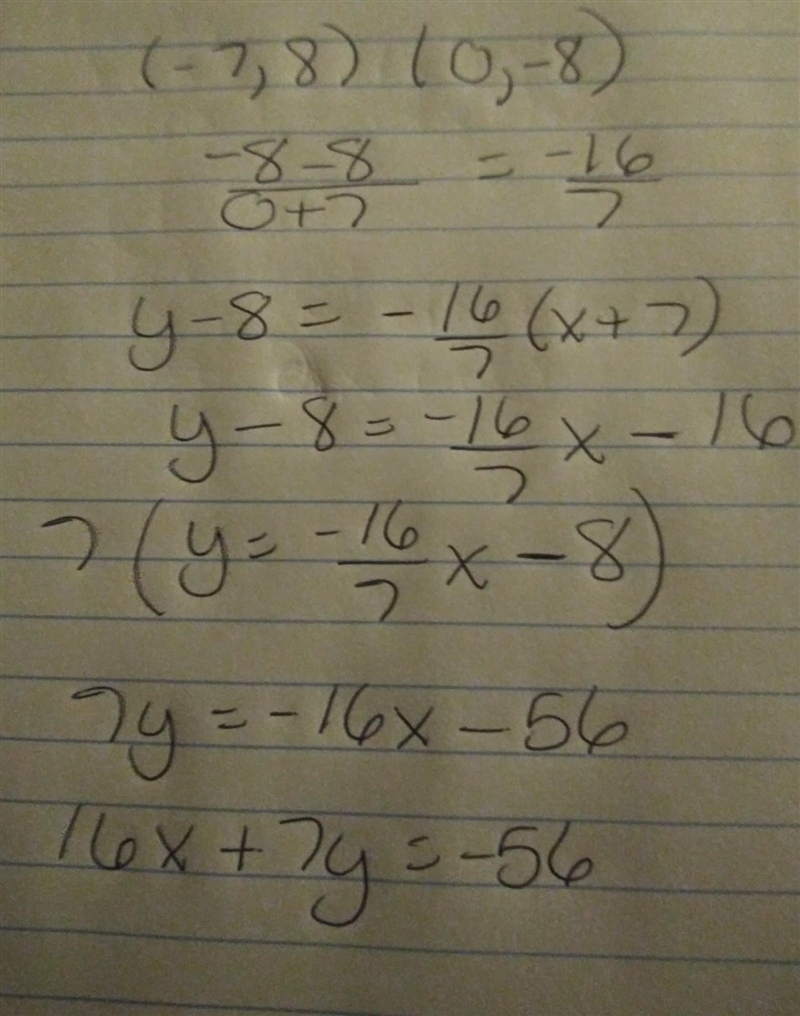 (-7,8) (0,-8)
-8-8/0+7 = -16/7
y-8 = -16/7(x+7)
y-8 = -16/7x-16
7(y = -16/7x-8)
7y = -16x-56
16x+7y = -56